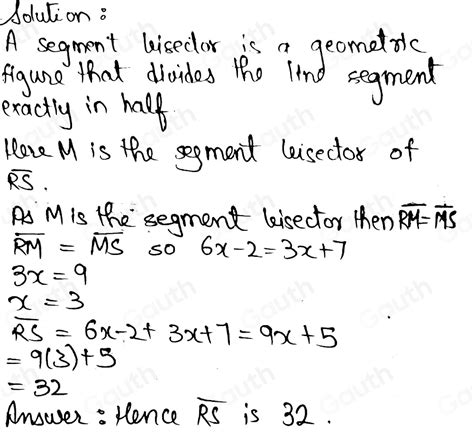 Solution :
A segment bisector is a geometric
figure that divides the line segment
exactly in half.
Here M is the segment bisector of
R̅S̅.
As M is the segment bisector then R̅M̅=M̅S̅
R̅M̅ = M̅S̅ so 6x-2=3x+7
3x=9
x=3
R̅S̅ = 6x-2+3x+7=9x+5
=9(3)+5
=32
Answer : Hence R̅S̅ is 32.